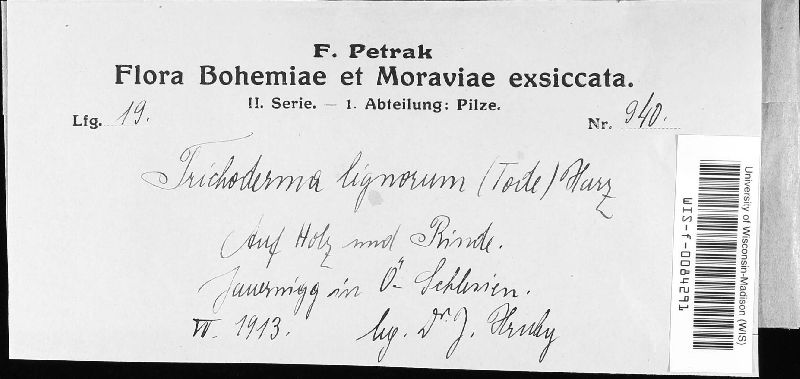 F. Petrak
Flora Bohemiae et Moraviae exsiccata.
II. Serie. — 1. Abteilung: Pilze.
Lfg. 19. Nr. 940.
Trichoderma lignorum (Tode) Harz
Auf Holz und Rinde.
Jauernigg in Ö.- Schlesien.
1913. leg. Dr J. Hruby
University of Wisconsin-Madison (WIS)
WIS-f-0084291